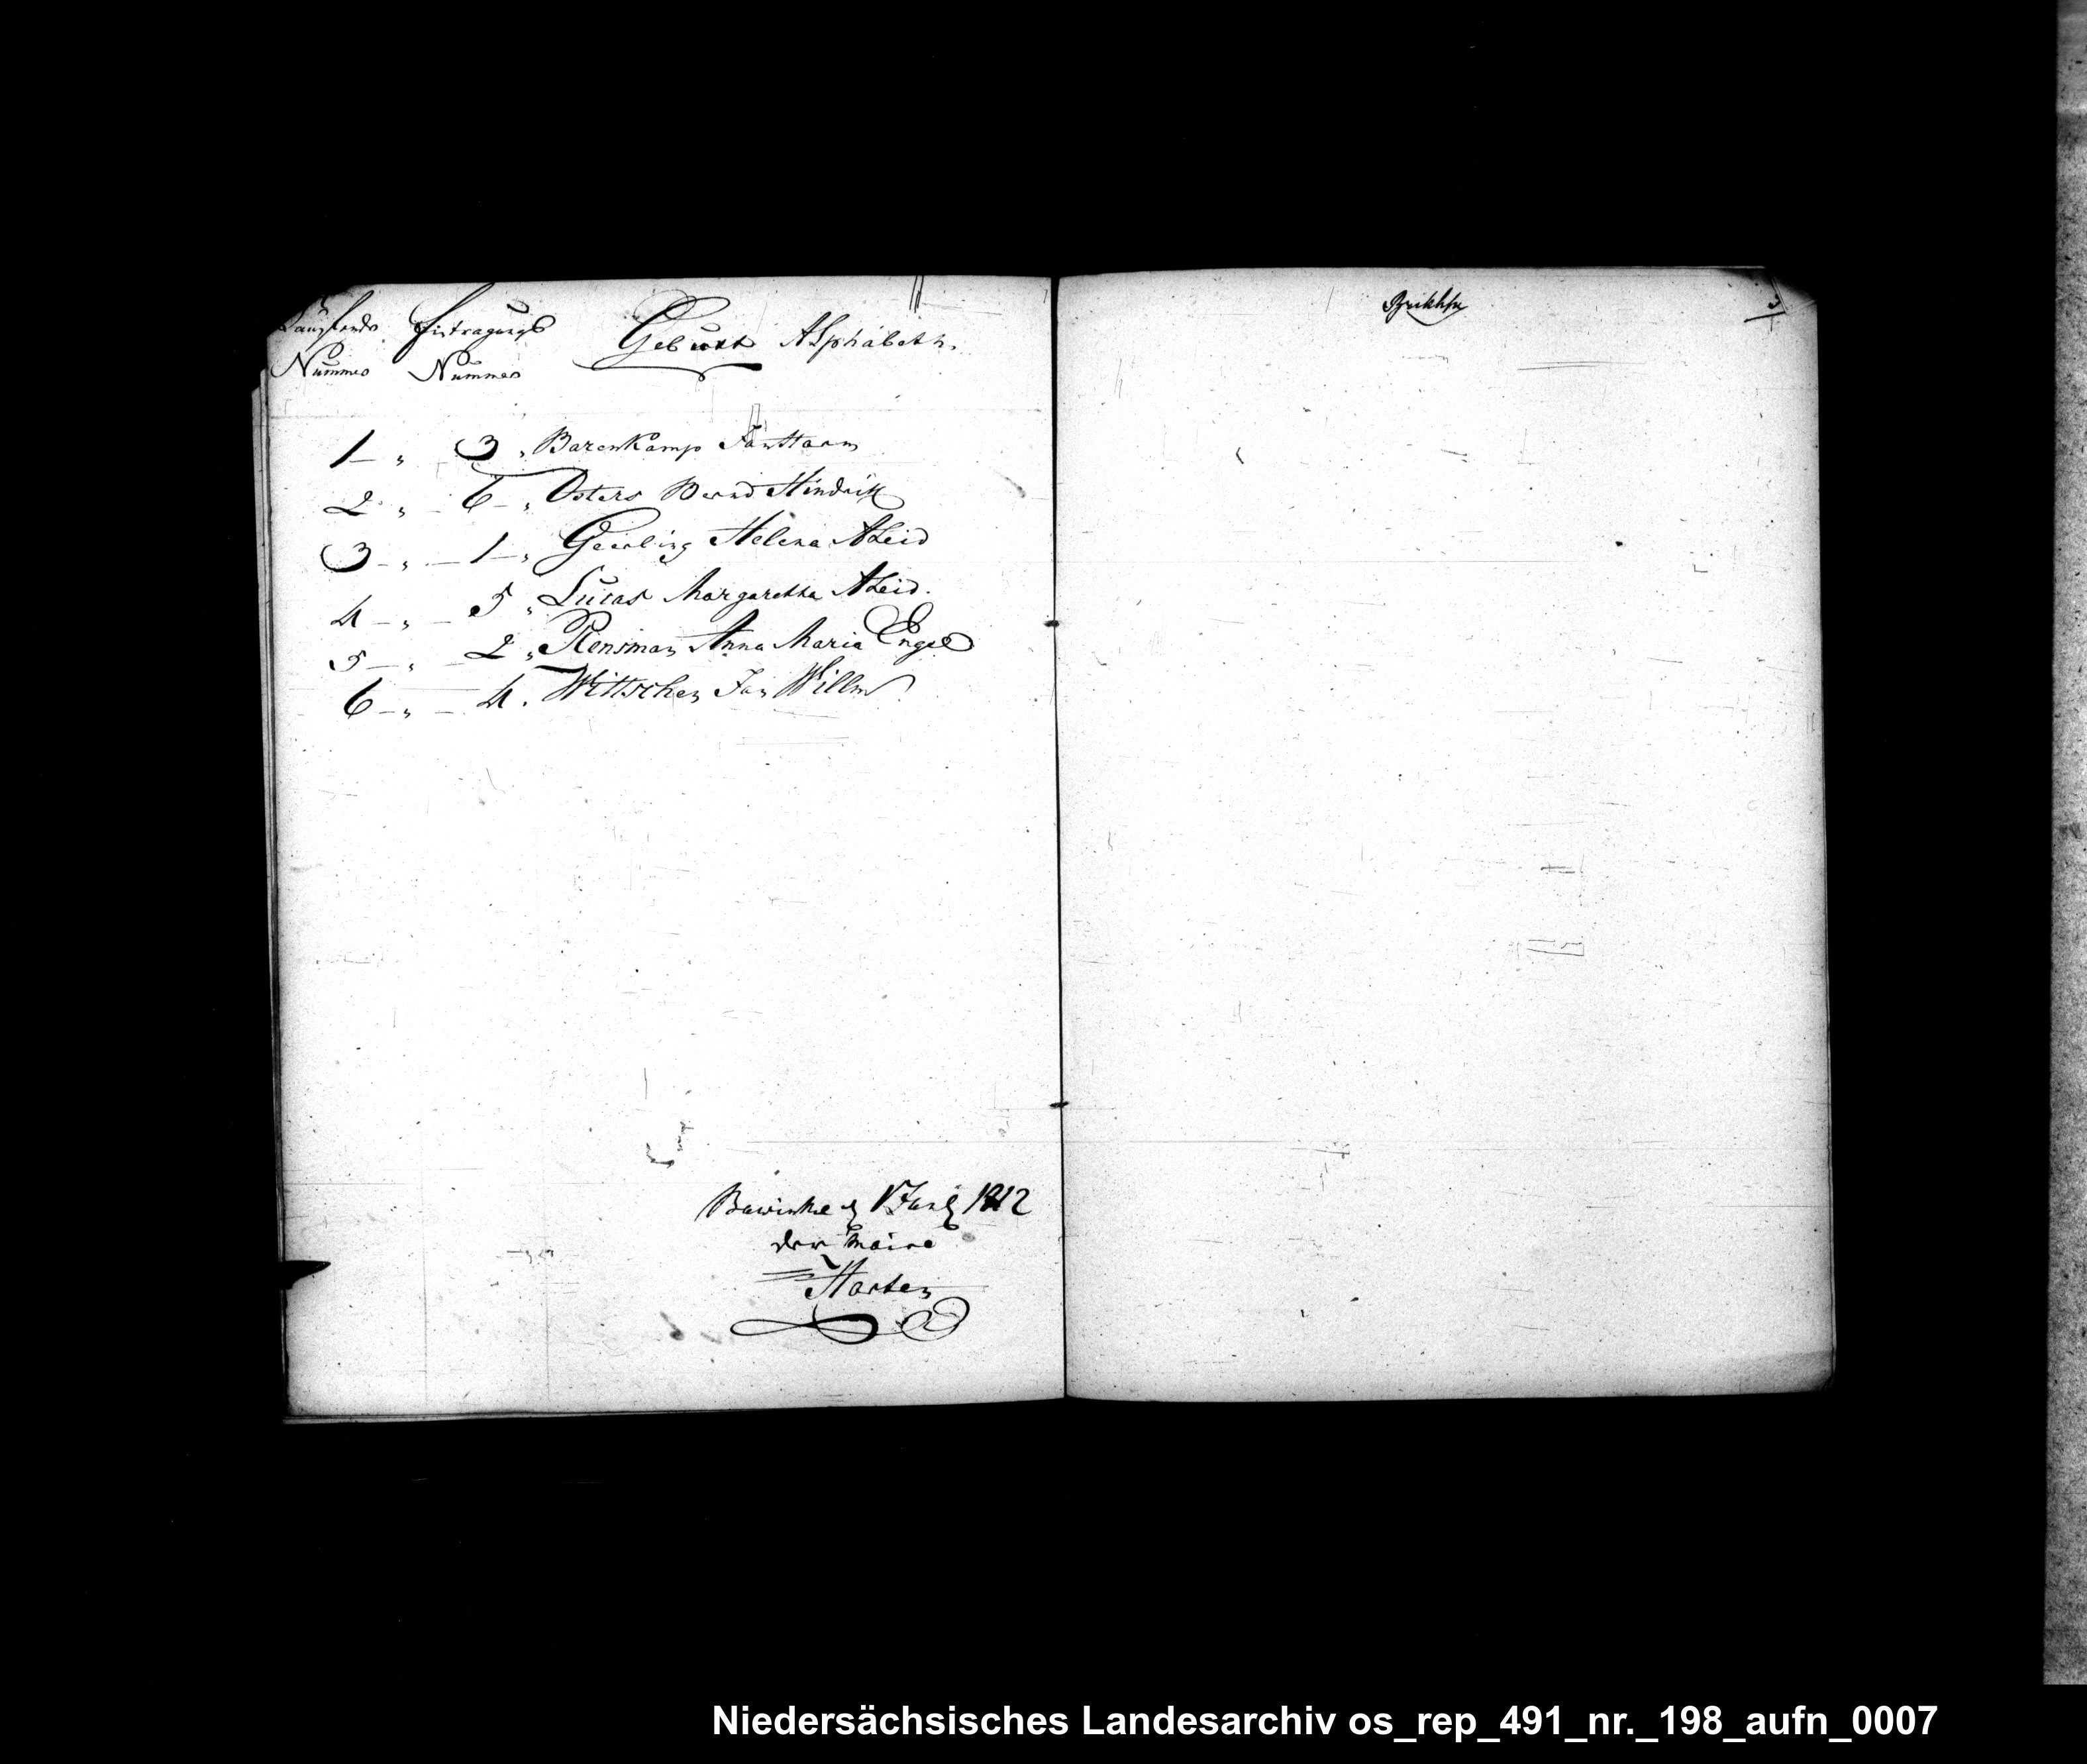 Laufende Eintragungs Geburt Alphabeth.
Nummer Nummer
1 " 3 " Barenkamp Jan Harm
2 " 6 " Osters Bernd Hindrik
3 " 1 " Geerling Helena Aleid
4 " 5 " Lucas Margaretha Aleid.
5 " 2 " Rensman Anna Maria Engel
6 " 4 . Wittschen Jan Willm
Bawinkel 1812
der Maire
Harten
Niedersächsisches Landesarchiv os_rep_491_nr._198_aufn_0007